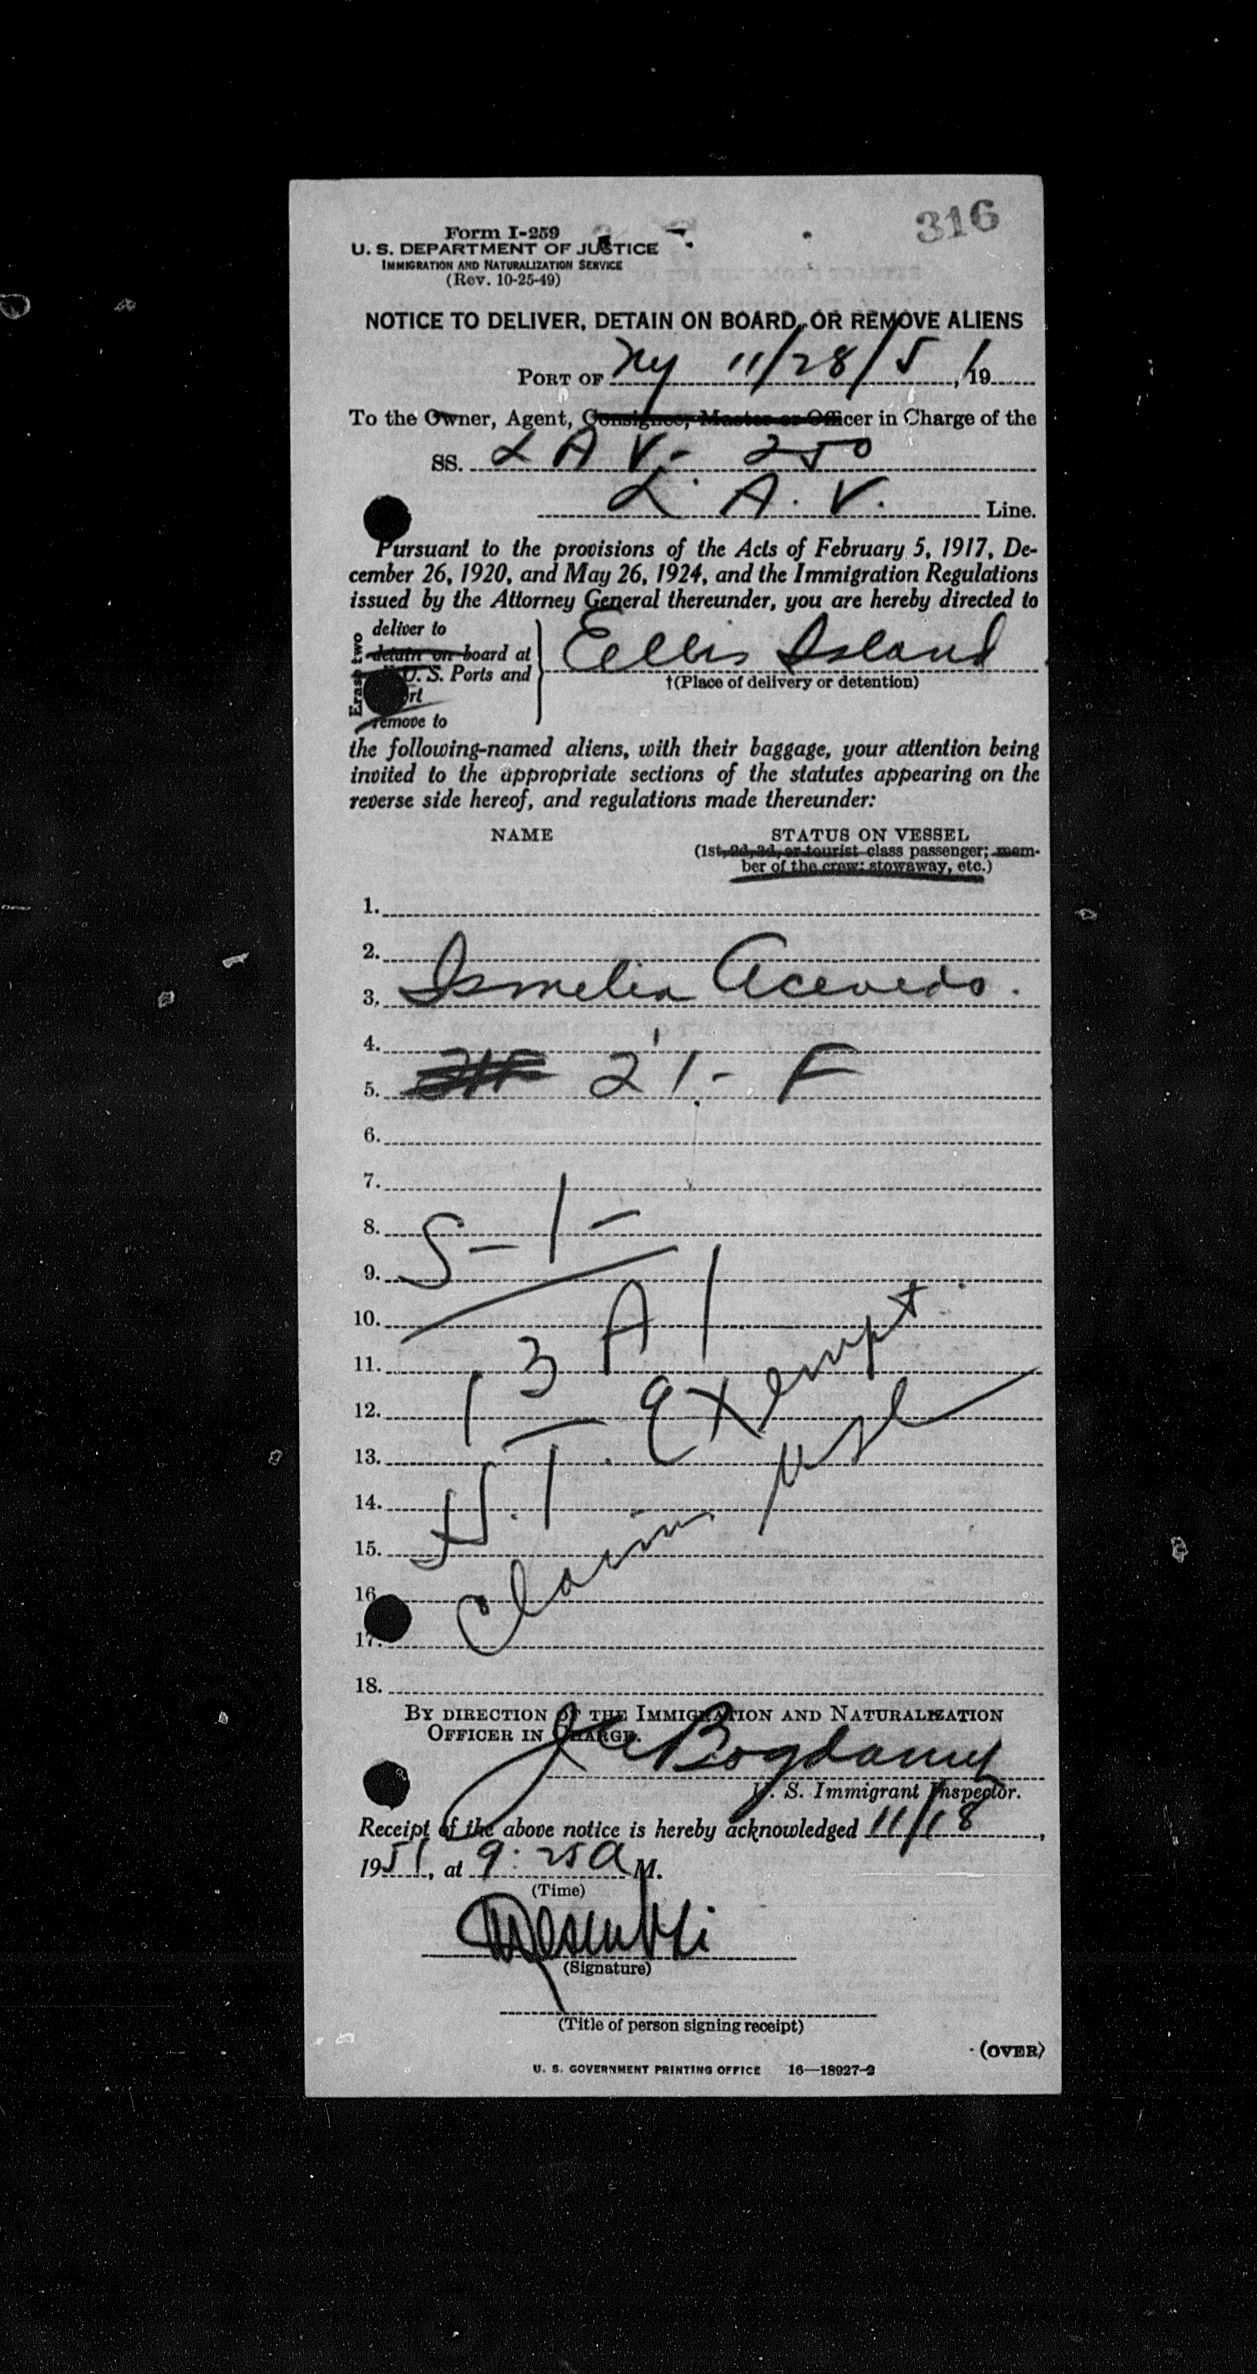 316
Form I-259
U. S. DEPARTMENT OF JUSTICE
IMMIGRATION AND NATURALIZATION SERVICE
(Rev. 10-25-49)
NOTICE TO DELIVER, DETAIN ON BOARD, OR REMOVE ALIENS
PORT OF Ny 11/28/51, 19
To the Owner, Agent, Consignee, Master or Officer in Charge of the
SS. L A V - 250
L. A. V. Line.
Pursuant to the provisions of the Acts of February 5, 1917, De-
cember 26, 1920, and May 26, 1924, and the Immigration Regulations
issued by the Attorney General thereunder, you are hereby directed to
Erase two
deliver to
detain on board at
U. S. Ports and
remove to
Eellis Island
†(Place of delivery or detention)
the following-named aliens, with their baggage, your attention being
invited to the appropriate sections of the statutes appearing on the
reverse side hereof, and regulations made thereunder:
NAME STATUS ON VESSEL
(1st, 2d, 3d, or tourist class passenger; mem-
ber of the crew; stowaway, etc.)
1.
2.
3. Ismelia Acevedo.
4.
5. 21 - F
6.
7.
8. S - 1 -
9.
10. A 1
11. 1 3
12. Exempt
13.
14. H. T.
15.
16. Claim
17.
18.
BY DIRECTION OF THE IMMIGRATION AND NATURALIZATION
OFFICER IN CHARGE.
Bogdany
U. S. Immigrant Inspector.
Receipt of the above notice is hereby acknowledged 11/18,
1951, at 9:25 A M.
(Time)
(Signature)
(Title of person signing receipt)
(OVER)
U. S. GOVERNMENT PRINTING OFFICE 16—18927-2